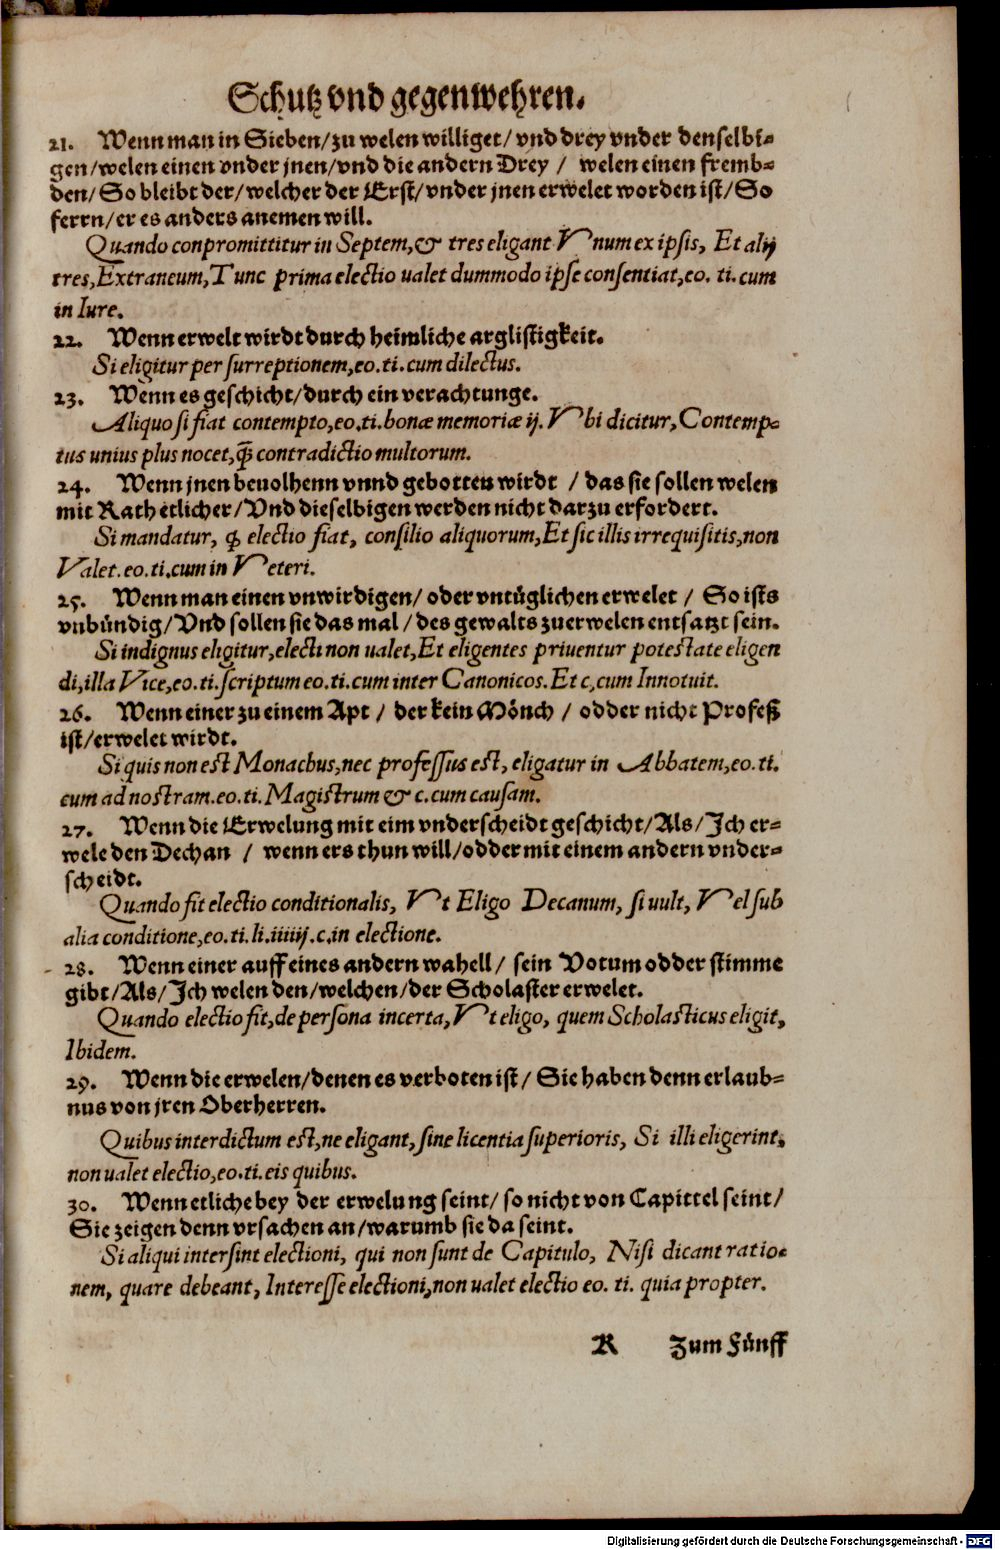 Schutz vnd gegenwehren.
21. Wenn man in Sieben/zu welen williget/ vnd drey vnder denselbi=
gen/welen einen vnder jnen/vnd die andern Drey / welen einen fremb=
den/So bleibt der/welcher der Erst/vnder jnen erwelet worden ist/So
ferrn/er es anders anemen will.
Quando conpromittitur in Septem,& tres eligant Vnum ex ipsis, Et alij
tres,Extraneum,Tunc prima electio ualet dummodo ipse consentiat,eo. ti.cum
in Iure.
22. Wenn erwelt wirdt durch heimliche arglistigkeit.
Si eligitur per surreptionem,eo.ti.cum dilectus.
23. Wenn es geschicht/durch ein verachtunge.
Aliquo si fiat contempto,eo.ti.bonæ memoriæ ij. Vbi dicitur,Contemp-
tus unius plus nocet,q̃ contradictio multorum.
24. Wenn jnen beuolhenn vnnd gebotten wirdt / das sie sollen welen
mit Rath etlicher/Vnd dieselbigen werden nicht darzu erfordert.
Si mandatur, ꝙ electio fiat, consilio aliquorum,Et sic illis irrequisitis,non
Valet.eo.ti.cum in Veteri.
25. Wenn man einen vnwirdigen/ oder vntüglichen erwelet / So ists
vnbündig/Vnd sollen sie das mal/des gewalts zuerwelen entsatzt sein.
Si indignus eligitur,electi non ualet,Et eligentes priuentur potestate eligen
di,illa Vice,eo.ti.scriptum eo.ti.cum inter Canonicos.Et c,cum Innotuit.
26. Wenn einer zu einem Apt / der kein Mönch / odder nicht Profeß
ist/erwelet wirdt.
Si quis non est Monachus,nec professus est, eligatur in Abbatem,eo.ti.
cum ad nostram.eo.ti.Magistrum & c.cum causam.
27. Wenn die Erwelung mit eim vnderscheidt geschicht/Als/Ich er=
wele den Dechan / wenn ers thun will/odder mit einem andern vnder=
scheidt.
Quando fit electio conditionalis, Vt Eligo Decanum, si uult, Vel sub
alia conditione,eo.ti.li.iiiiij.c.in electione.
28. Wenn einer auff eines andern wahell/ sein Votum odder stimme
gibt/Als/Ich welen den/welchen/der Scholaster erwelet.
Quando electio fit,de persona incerta,Vt eligo, quem Scholasticus eligit,
Ibidem.
29. Wenn die erwelen/denen es verboten ist/ Sie haben denn erlaub=
nus von jren Oberherren.
Quibus interdictum est,ne eligant,sine licentia superioris, Si illi eligerint,
non ualet electio,eo.ti.eis quibus.
30. Wenn etliche bey der erwelung seint/ so nicht von Capittel seint/
Sie zeigen denn vrsachen an/warumb sie da seint.
Si aliqui intersint electioni, qui non sunt de Capitulo, Nisi dicant ratio-
nem, quare debeant, Interesse electioni,non ualet electio eo. ti. quia propter.
R Zum Fünff
Digitalisierung gefördert durch die Deutsche Forschungsgemeinschaft - DFG